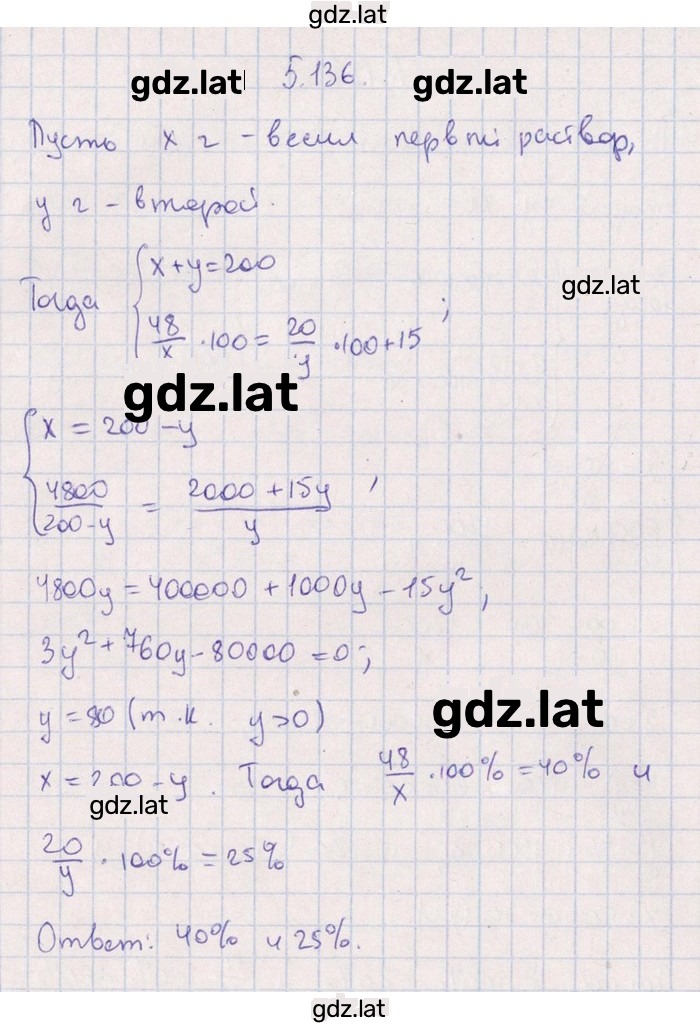 gdz.lat
gdz.lat 5.136. gdz.lat
Пусть x г - весил первый раствор,
y г - второй.
Тогда { x+y=200
48/x · 100 = 20/y · 100 + 15 ;
gdz.lat
gdz.lat
{ x = 200 - y
4800/(200-y) = (2000 + 15y)/y ,
4800y = 400000 + 1000y - 15y² ;
3y² + 760y - 80000 = 0 ;
y = 80 (т.к. y>0)
gdz.lat
x = 200 - y . Тогда 48/x · 100% = 40% и
gdz.lat
20/y · 100% = 25%
Ответ: 40% и 25%.
gdz.lat